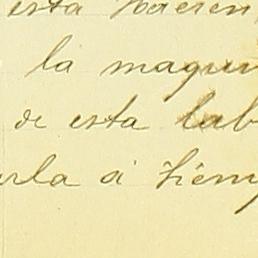 esta hacien
la maquin
de esta lab
arla á tiemp